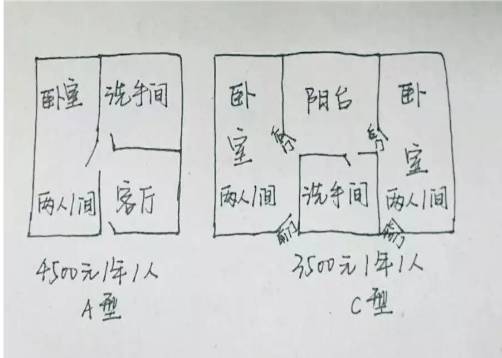 卧室
洗手间
两人/间
客厅
4500元/年/人
A型
卧室
阳台
卧室
后门
后门
两人/间
洗手间
两人/间
前门
前门
3500元/年/人
C型